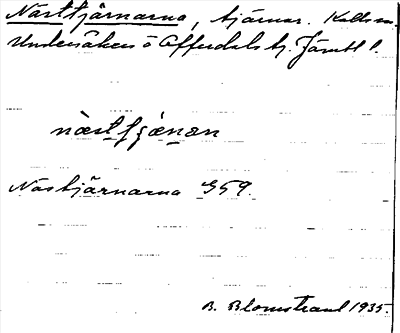 Nästtjärnarna, tjärnar. Kalls sn.
Undersåkers o Offerdals tg. Jämtl l.
næsttjænan
Nästjärnarna G59.
B. Blomstrand 1935.